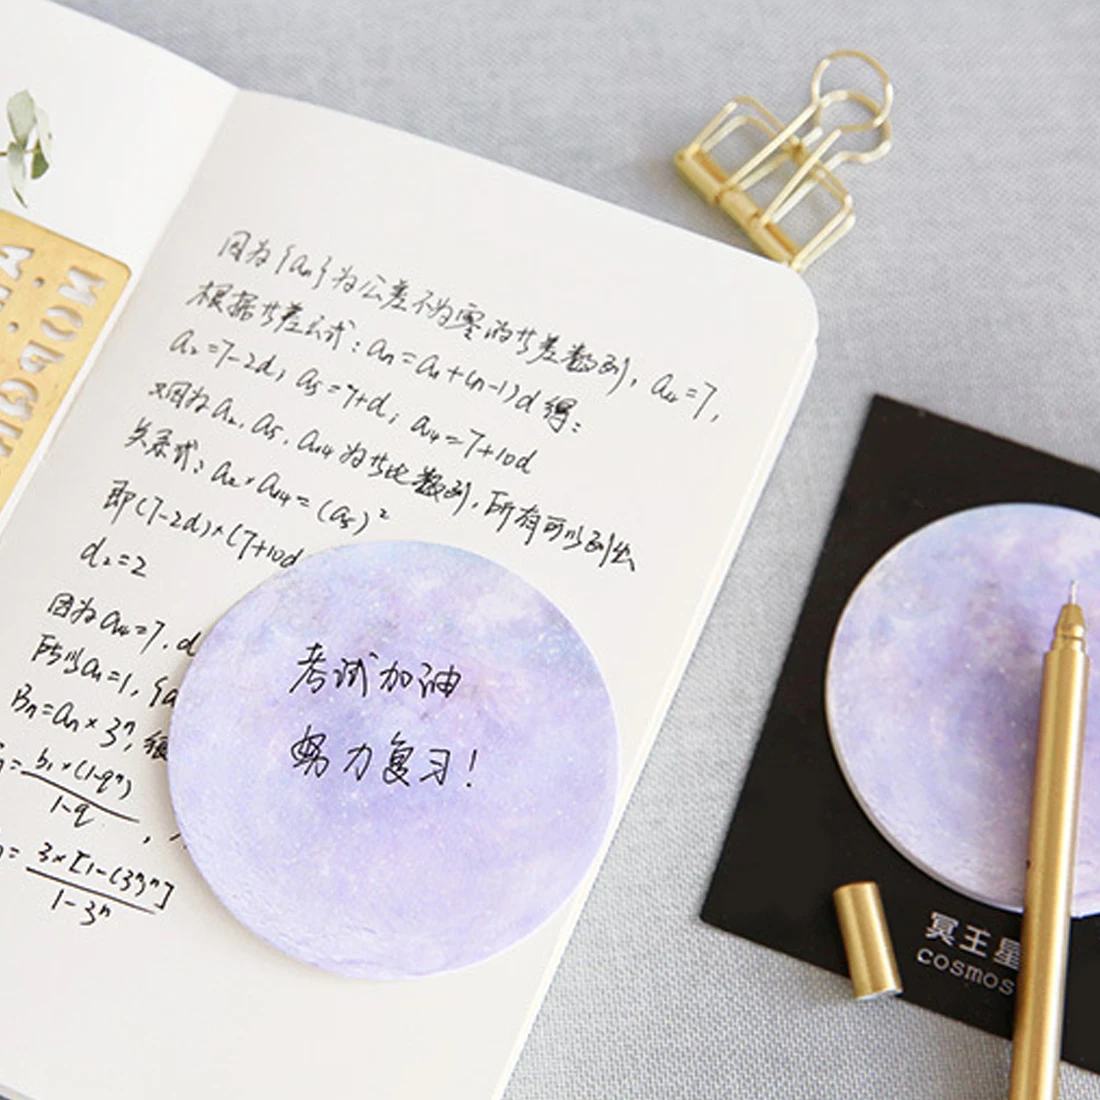 因为{aₙ}为公差不为零的等差数列，a₄=7，
根据等差公式：aₙ=a₁+(n-1)d 得：
a₂=7-2d；a₅=7+d；a₁₄=7+10d
又因为a₂、a₅、a₁₄为等比数列，所有可以列出
关系式：a₂×a₁₄=(a₅)²
即(7-2d)×(7+10d
d₂=2
因为a₄=7，d
所以a₁=1，{a
Bₙ=aₙ×3ⁿ，
=b₁×(1-qⁿ)
1-q，
=3×[1-(3ⁿ)ⁿ]
1-3ⁿ
考试加油
努力复习！
冥王星
cosmos